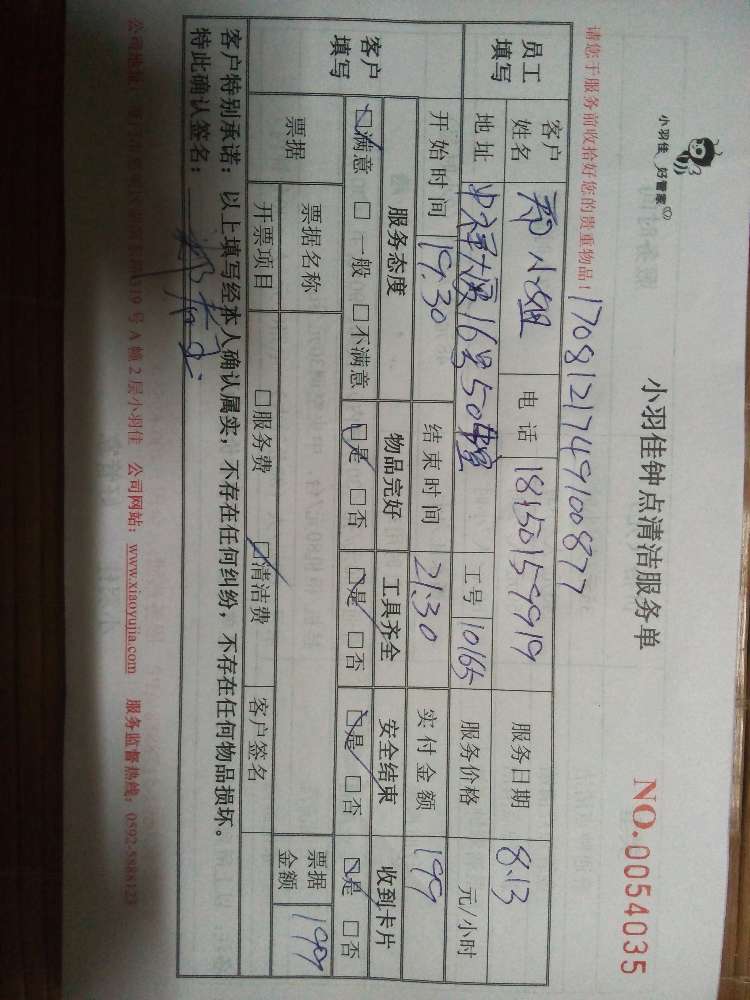 小羽佳 好管家
小羽佳钟点清洁服务单
NO.0054035
请您于服务前收拾好您的贵重物品!
1708121749100877
员工填写 客户姓名 小姐 电话 18150159919 服务日期 8.13
地址 16号504室 工号 10165 服务价格 元/小时
开始时间 19:30 结束时间 21:30 实付金额 199
客户填写 服务态度 物品完好 工具齐全 安全结束 收到卡片
☑满意 □一般 □不满意 ☑是 □否 ☑是 □否 ☑是 □否 ☑是 □否
票据 票据名称 票据金额 199
开票项目 □服务费 ☑清洁费 客户签名
客户特别承诺:以上填写经本人确认属实,不存在任何纠纷,不存在任何物品损坏。
特此确认签名:
公司地址: 319号A幢2层小羽佳 公司网站:www.xiaoyujia.com 服务监督热线:0592-5888123